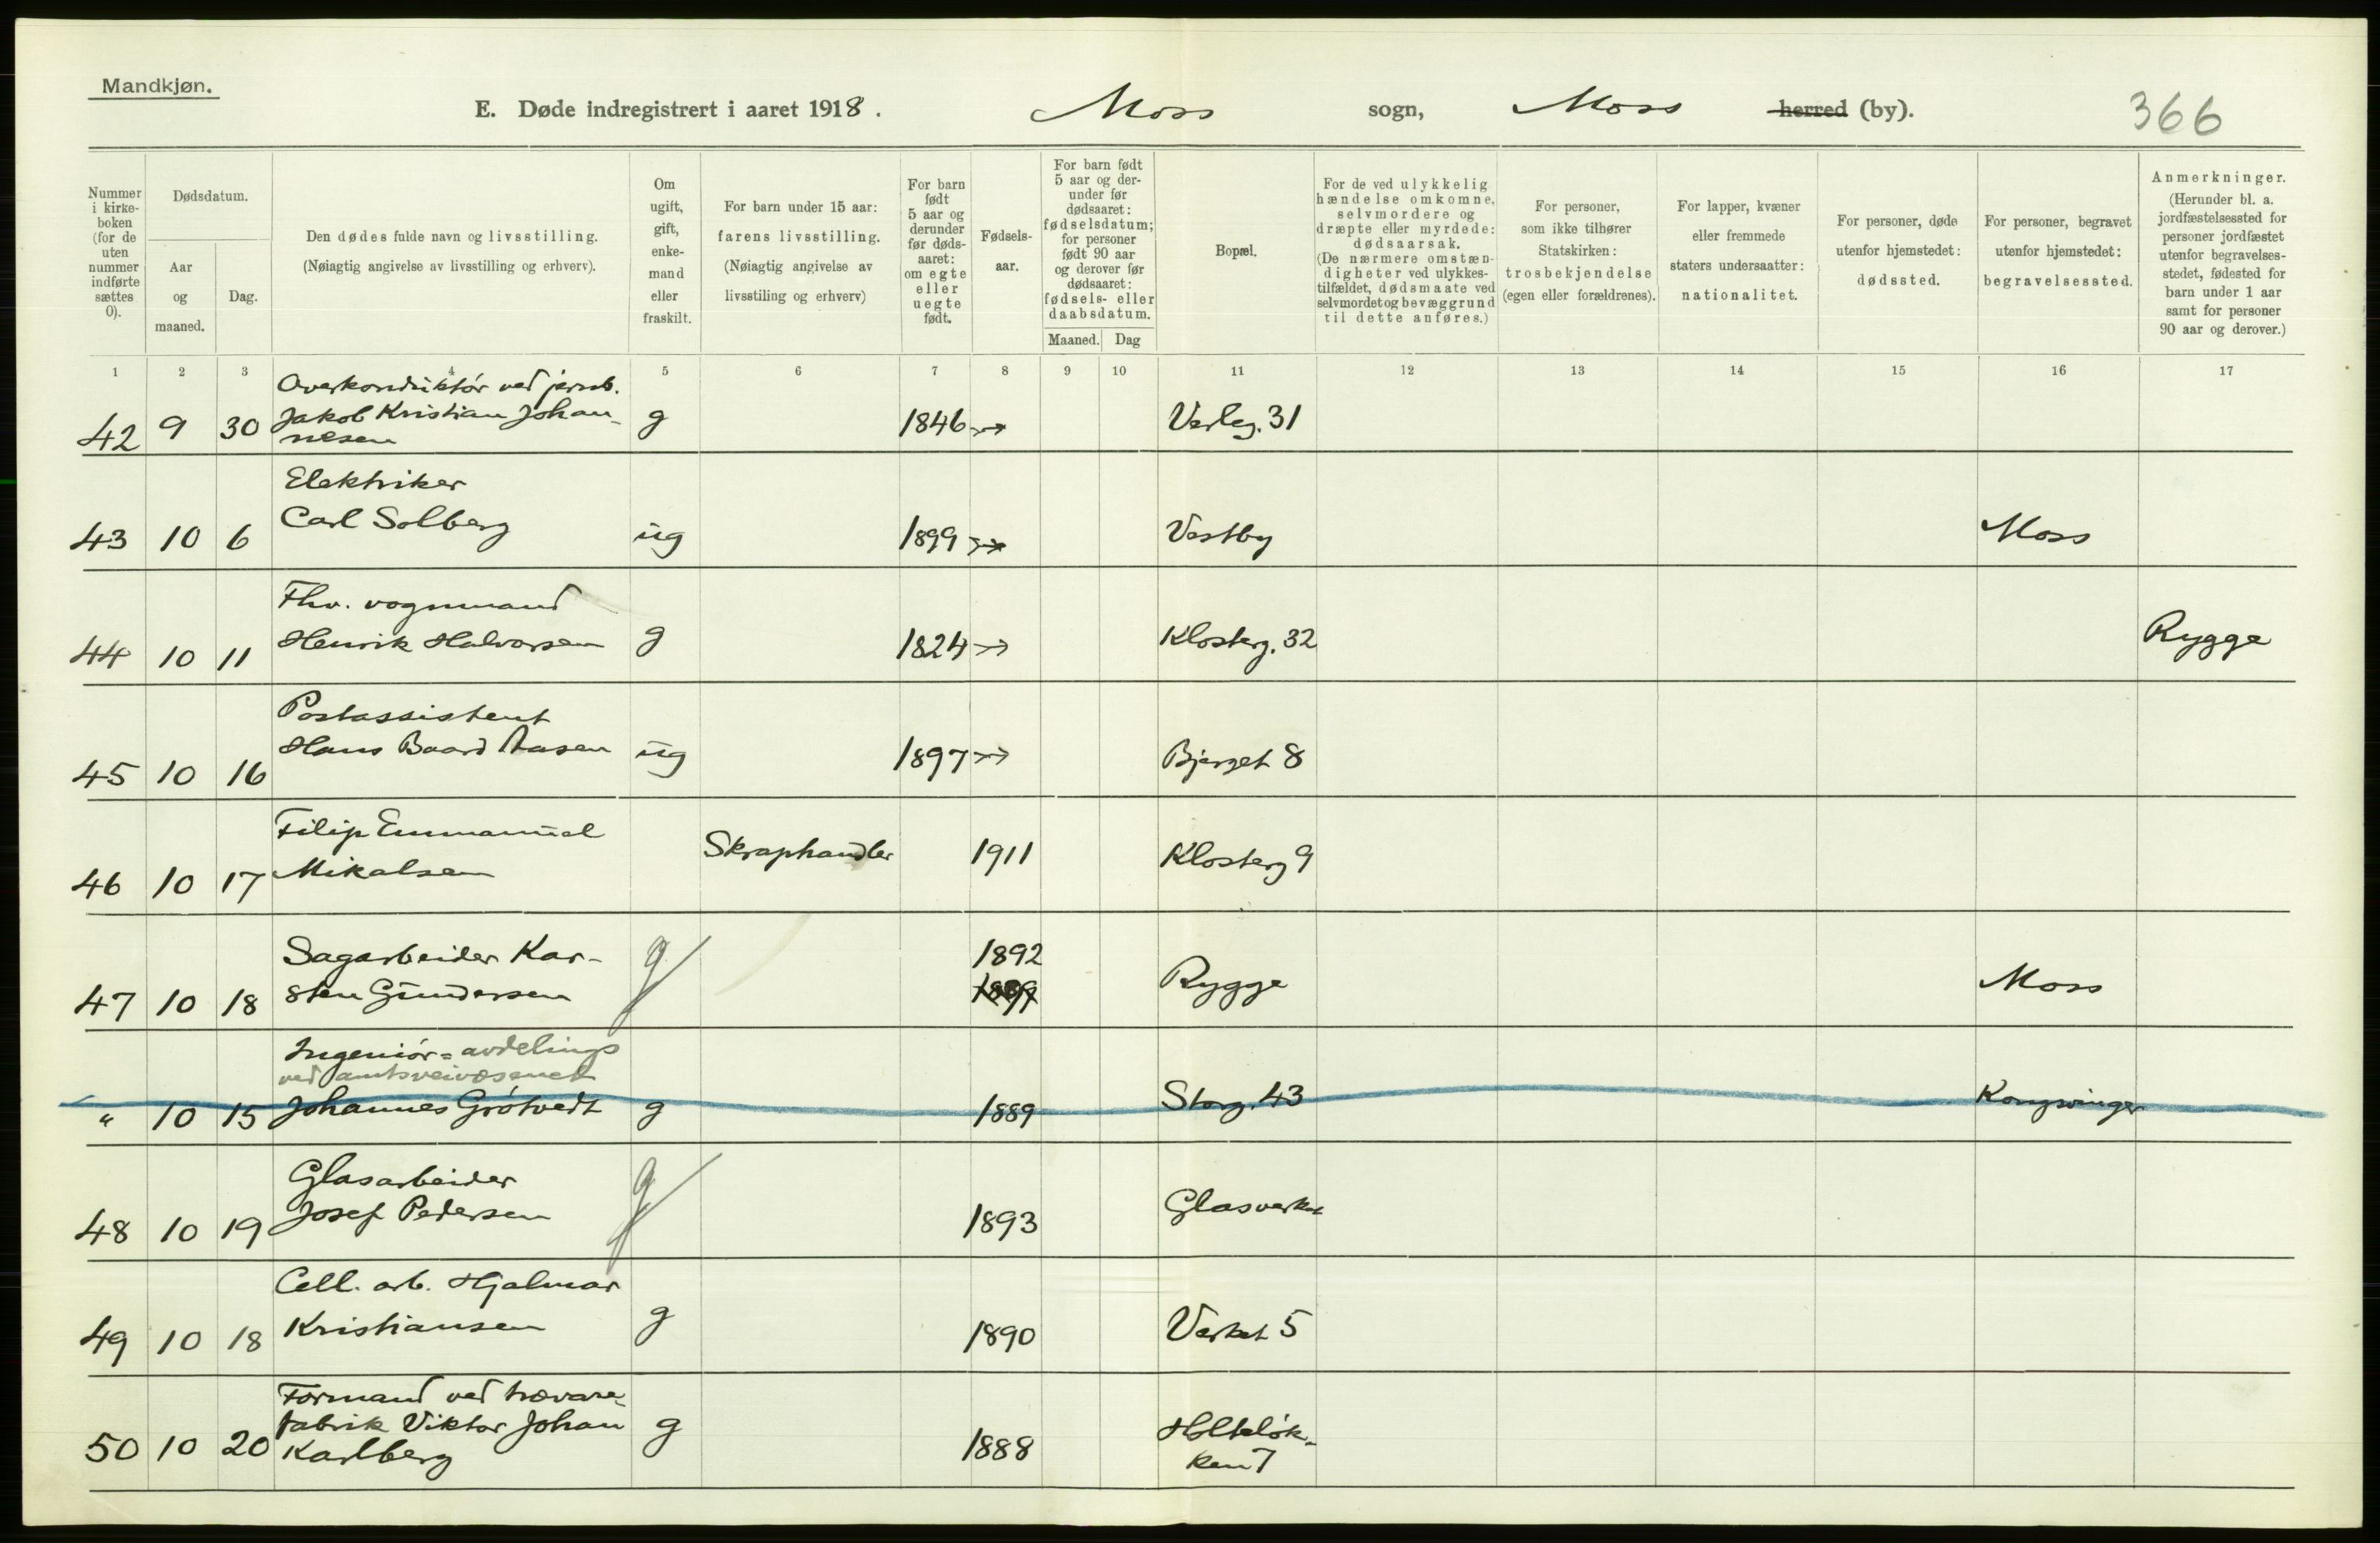 Mandkjøn.
E. Døde indregistrert i aaret 1918. Moss sogn, Moss herred (by). 366
Nummer i kirke- boken (for de uten nummer indførte sættes 0).
Dødsdatum.
Aar og maaned.
Dag.
Den dødes fulde navn og livsstilling.
(Nøiagtig angivelse av livsstilling og erhverv).
Om ugift, gift, enke- mand eller fraskilt.
For barn under 15 aar:
farens livsstilling.
(Nøiagtig angivelse av
livsstiling og erhverv)
For barn født 5 aar og derunder før døds- aaret: om egte eller uegte født.
Fødsels- aar.
For barn født 5 aar og der- under før dødsaaret: fødselsdatum; for personer født 90 aar og derover før dødsaaret: fødsels- eller daabsdatum.
Maaned. Dag
Bopæl.
For de ved ulykkelig hændelse omkomne, selvmordere og dræpte eller myrdede: dødsaarsak.
(De nærmere omstæn- digheter ved ulykkes- tilfældet, dødsmaate ved selvmordet og bevæggrund til dette anføres.)
For personer, som ikke tilhører Statskirken: trosbekjendelse (egen eller forældrenes).
For lapper, kvæner eller fremmede staters undersaatter: nationalitet.
For personer, døde utenfor hjemstedet: dødssted.
For personer, begravet utenfor hjemstedet: begravelsessted.
Anmerkninger.
(Herunder bl. a. jordfæstelsessted for personer jordfæstet utenfor begravelses- stedet, fødested for barn under 1 aar samt for personer 90 aar og derover.)
1 2 3 4 5 6 7 8 9 10 11 12 13 14 15 16 17
Overkonduktór ved jernb.
42 9 30 Jakob Kristian Johan- g 1846 → Verleg. 31
nesen
Elektriker
43 10 6 Carl Solberg ug 1899 → Vestby Moss
Fhv. vognmand
44 10 11 Henrik Halvorsen g 1824 → Klosterg. 32 Rygge
Postassistent
45 10 16 Hans Baard Aasen ug 1897 → Bjerget 8
Filip Emmanuel
46 10 17 Mikalsen Skraphandler 1911 Klosterg 9
Sagarbeider Kar- g 1892
47 10 18 sten Gundersen 1899 Rygge Moss
Ingeniór = avdelings
ved amtsveivæsenet
" 10 15 Johannes Grótvedt g 1889 Storg. 43 Kongsvinger
Glasarbeider g
48 10 19 Josef Pedersen 1893 Glasverket
Cell. arb. Hjalmar
49 10 18 Kristiansen g 1890 Verket 5
Formand ved trævare-
50 10 20 fabrik Viktor Johan g 1888 Holteløk-
Karlberg ken 7